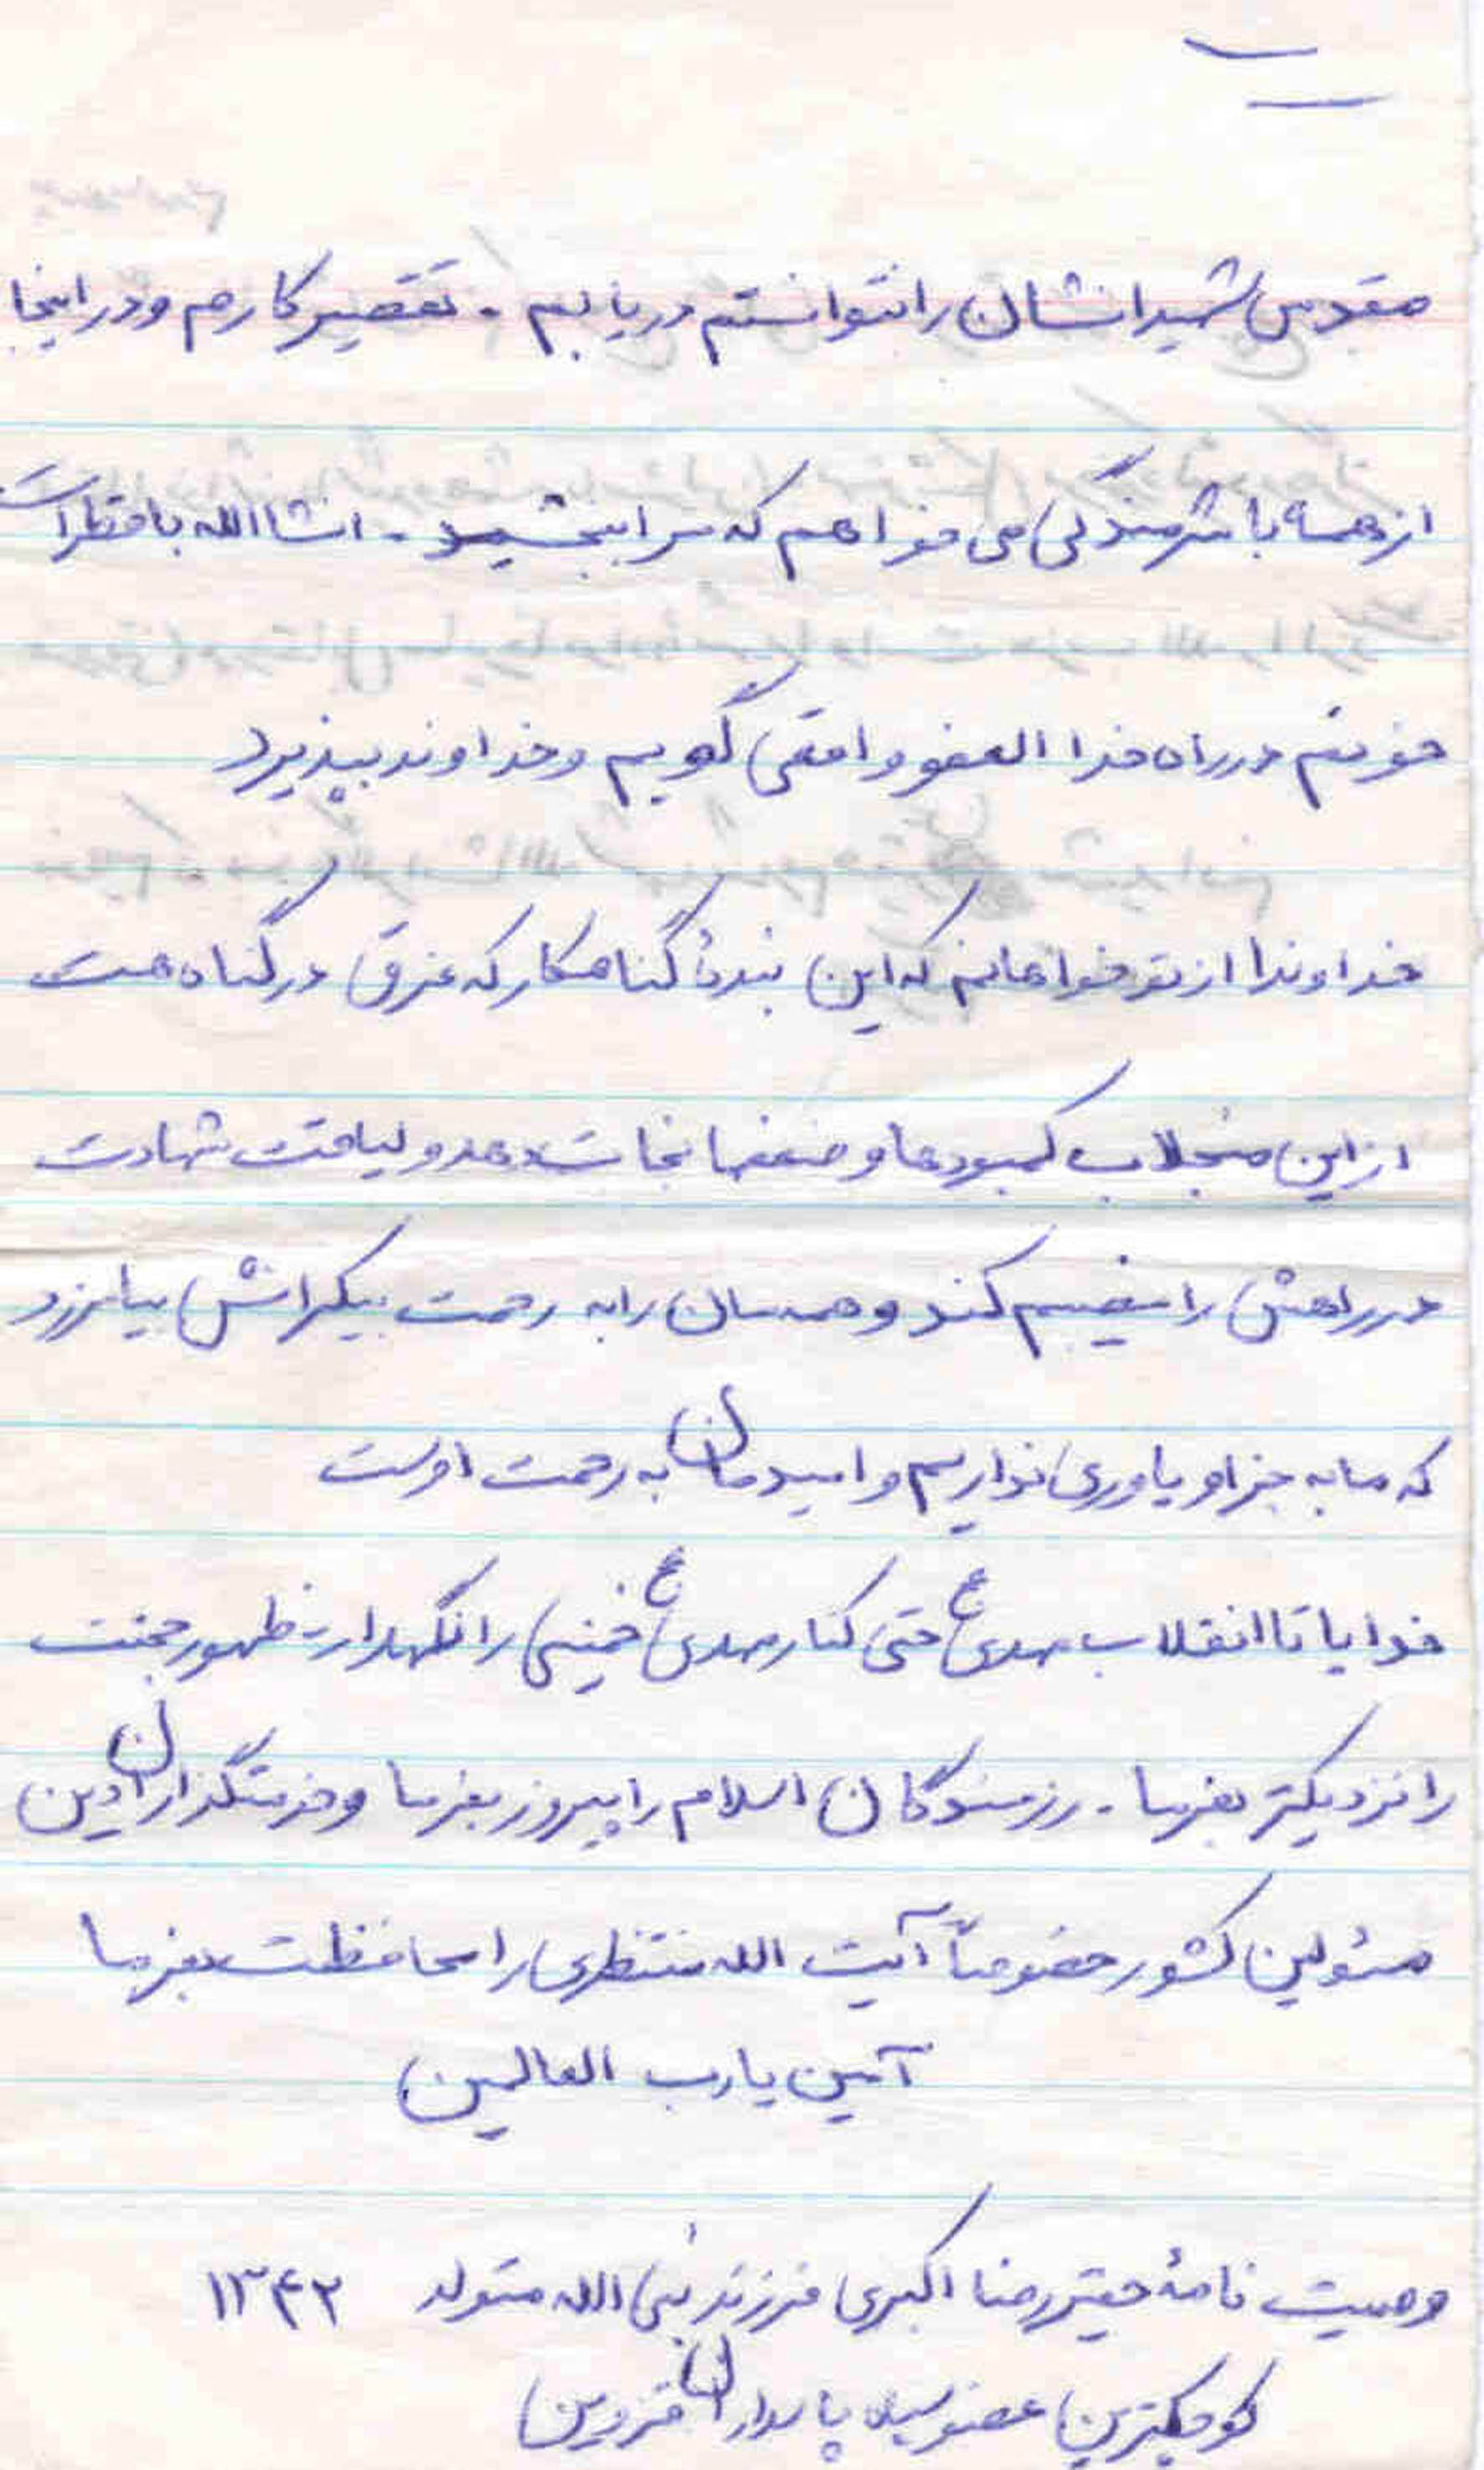 مقدس شهیدانشان را نتوانستم دریابم . تقصیر کارم و در اینجا
از همه با شرمندگی می خواهم که مرا ببخشید . انشاالله با قطرات
خونم در راه خدا العفو واقعی گویم و خداوند بپذیرد
خداوندا از تو خواهانم که این بندهٔ گناهکار که غرق در گناه هست
از این منجلاب کمبودها و ضعفها نجات دهد و لیاقت شهادت
در راهش را نصیبم کند و همه‌مان را به رحمت بیکرانش بیامرزد
که ما به جز او یاوری نداریم و امیدمان به رحمت اوست
خدایا تا انقلاب مهدی ع حتی کنار مهدی ع خمینی را نگهدار ظهور حجت
را نزدیکتر بفرما . رزمندگان اسلام را پیروز بفرما و خدمتگذاران دین
مسئولین کشور خصوصاً آیت الله منتظری را محافظت بفرما
آمین یا رب العالمین
وصیت نامهٔ حقیر رضا اکبری فرزند نبی الله متولد ۱۳۴۲
کوچکترین عضو سپاه پاسداران قزوین